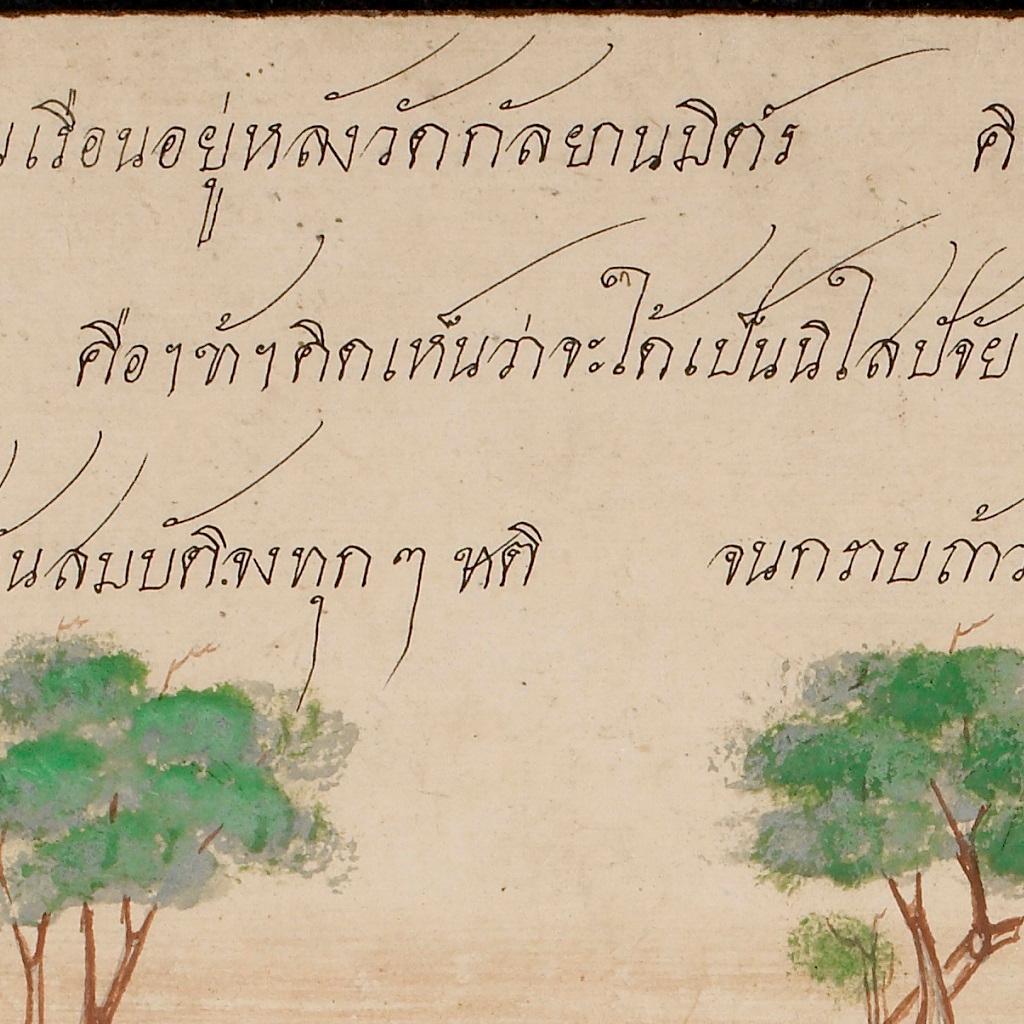 เรือนอยู่หลังวัดกัลยานมิตร์
คือฯข้าฯคิดเห็นว่าจะได้เป็นนิไสปัจัย
สมบัติ.จงทุก ๆ หติ จนกราบถ้ว